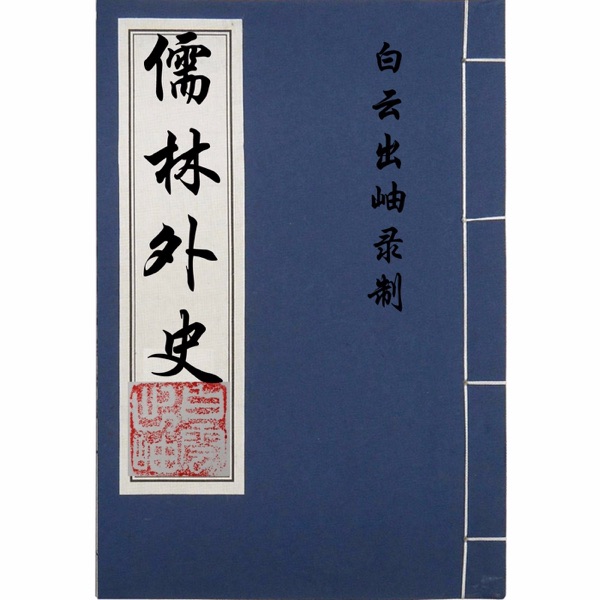 儒林外史
白云出岫录制
白雲出岫